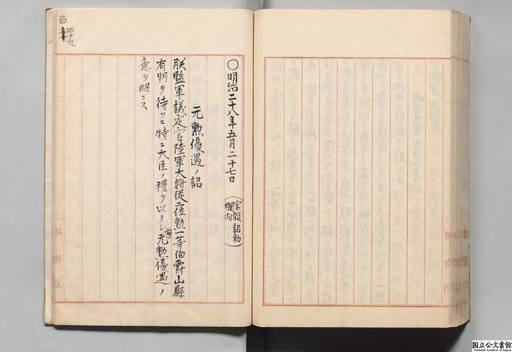 〇明治二十八年五月二十七日
(官報詔勅欄内)
元勲優遇ノ詔
朕監軍議定官陸軍大将従二位勲一等伯爵山縣
有朋ヲ待ツニ特ニ大臣ノ禮ヲ以テシ元勲優遇ノ
意ヲ昭ニス
国立公文書館
National Archives of Japan